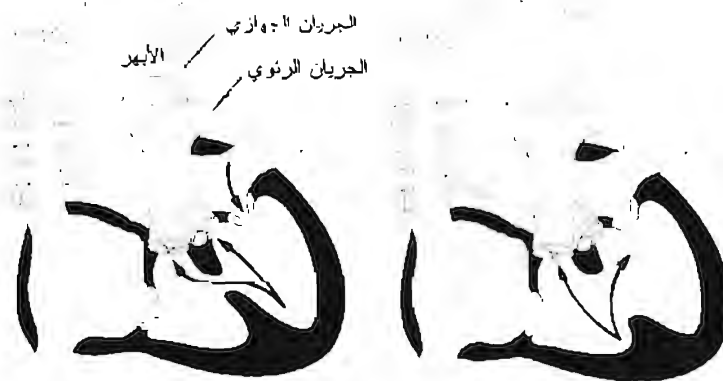 الجريان الجهازي
الأبهر
الجريان الرئوي